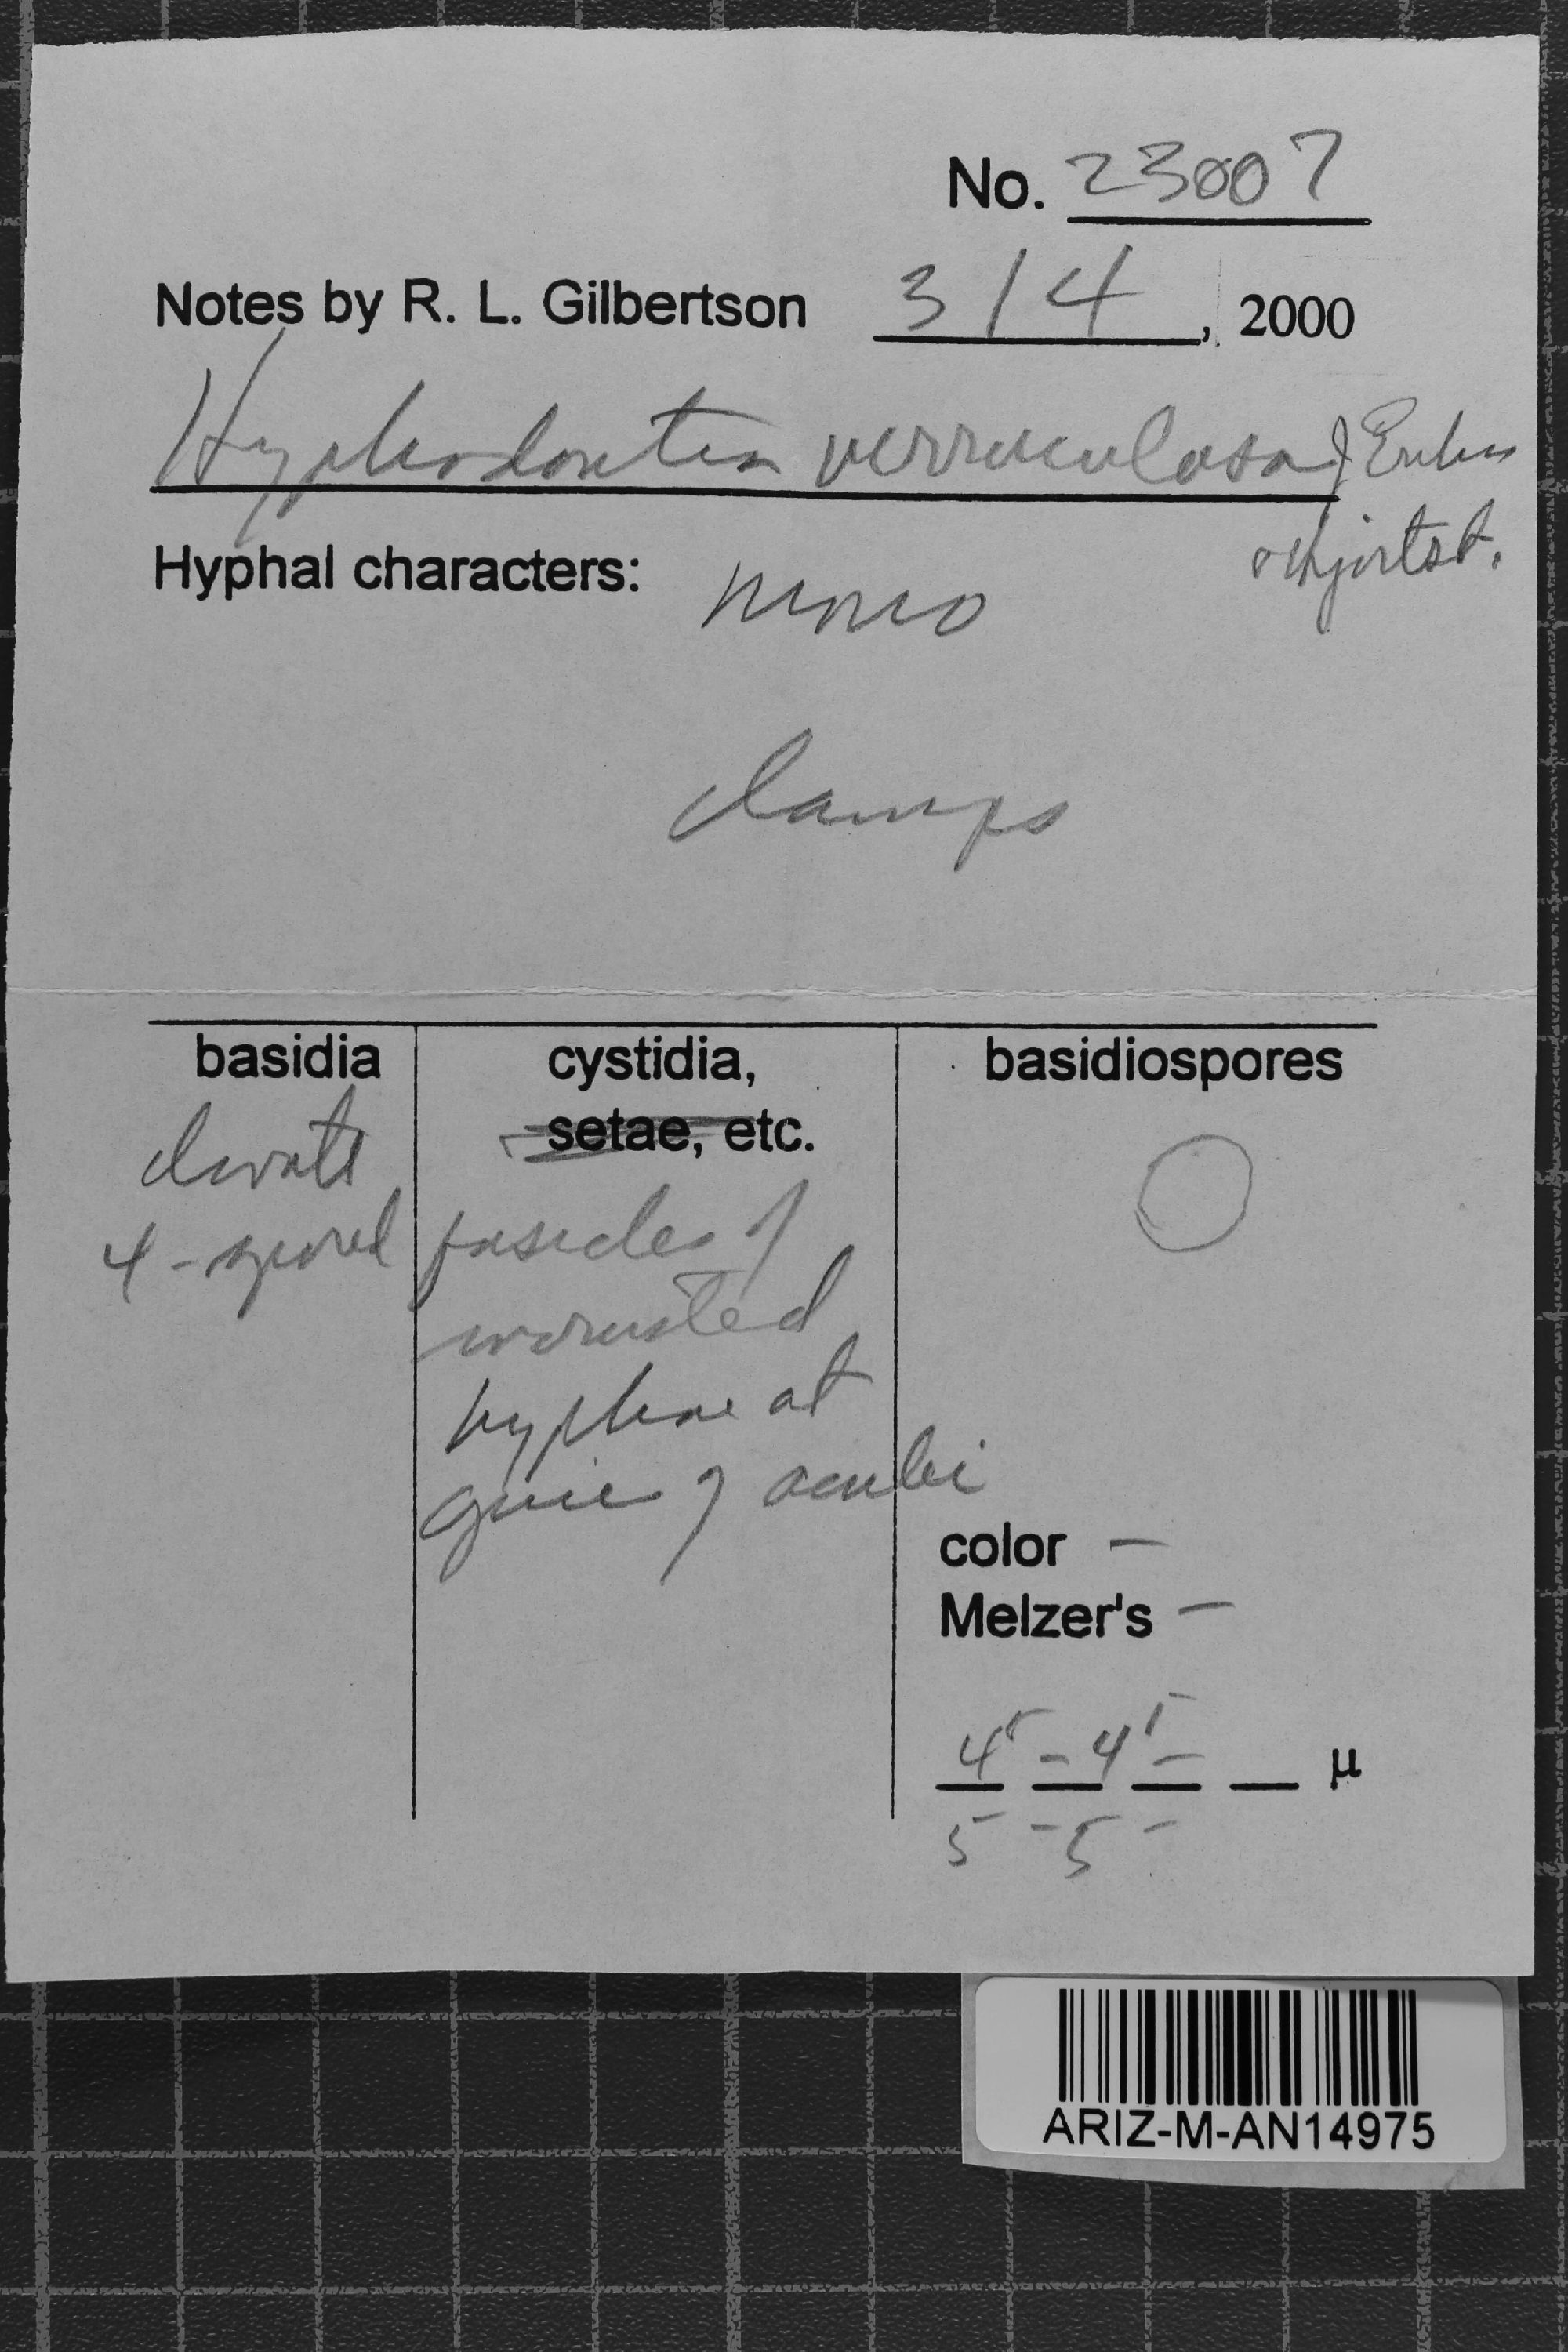 No. 23007
Notes by R. L. Gilbertson 3/4, 2000
Hyphodontia verruculosa J. Erikss
& Hjortst.
Hyphal characters: mono
clamps
basidia
clavate
4-spored
cystidia,
setae, etc.
fascicles of
incrusted
hyphae at
apices of aculei
basidiospores
color –
Melzer's –
4⁵ – 4⁵ – μ
5 – 5 –
ARIZ-M-AN14975